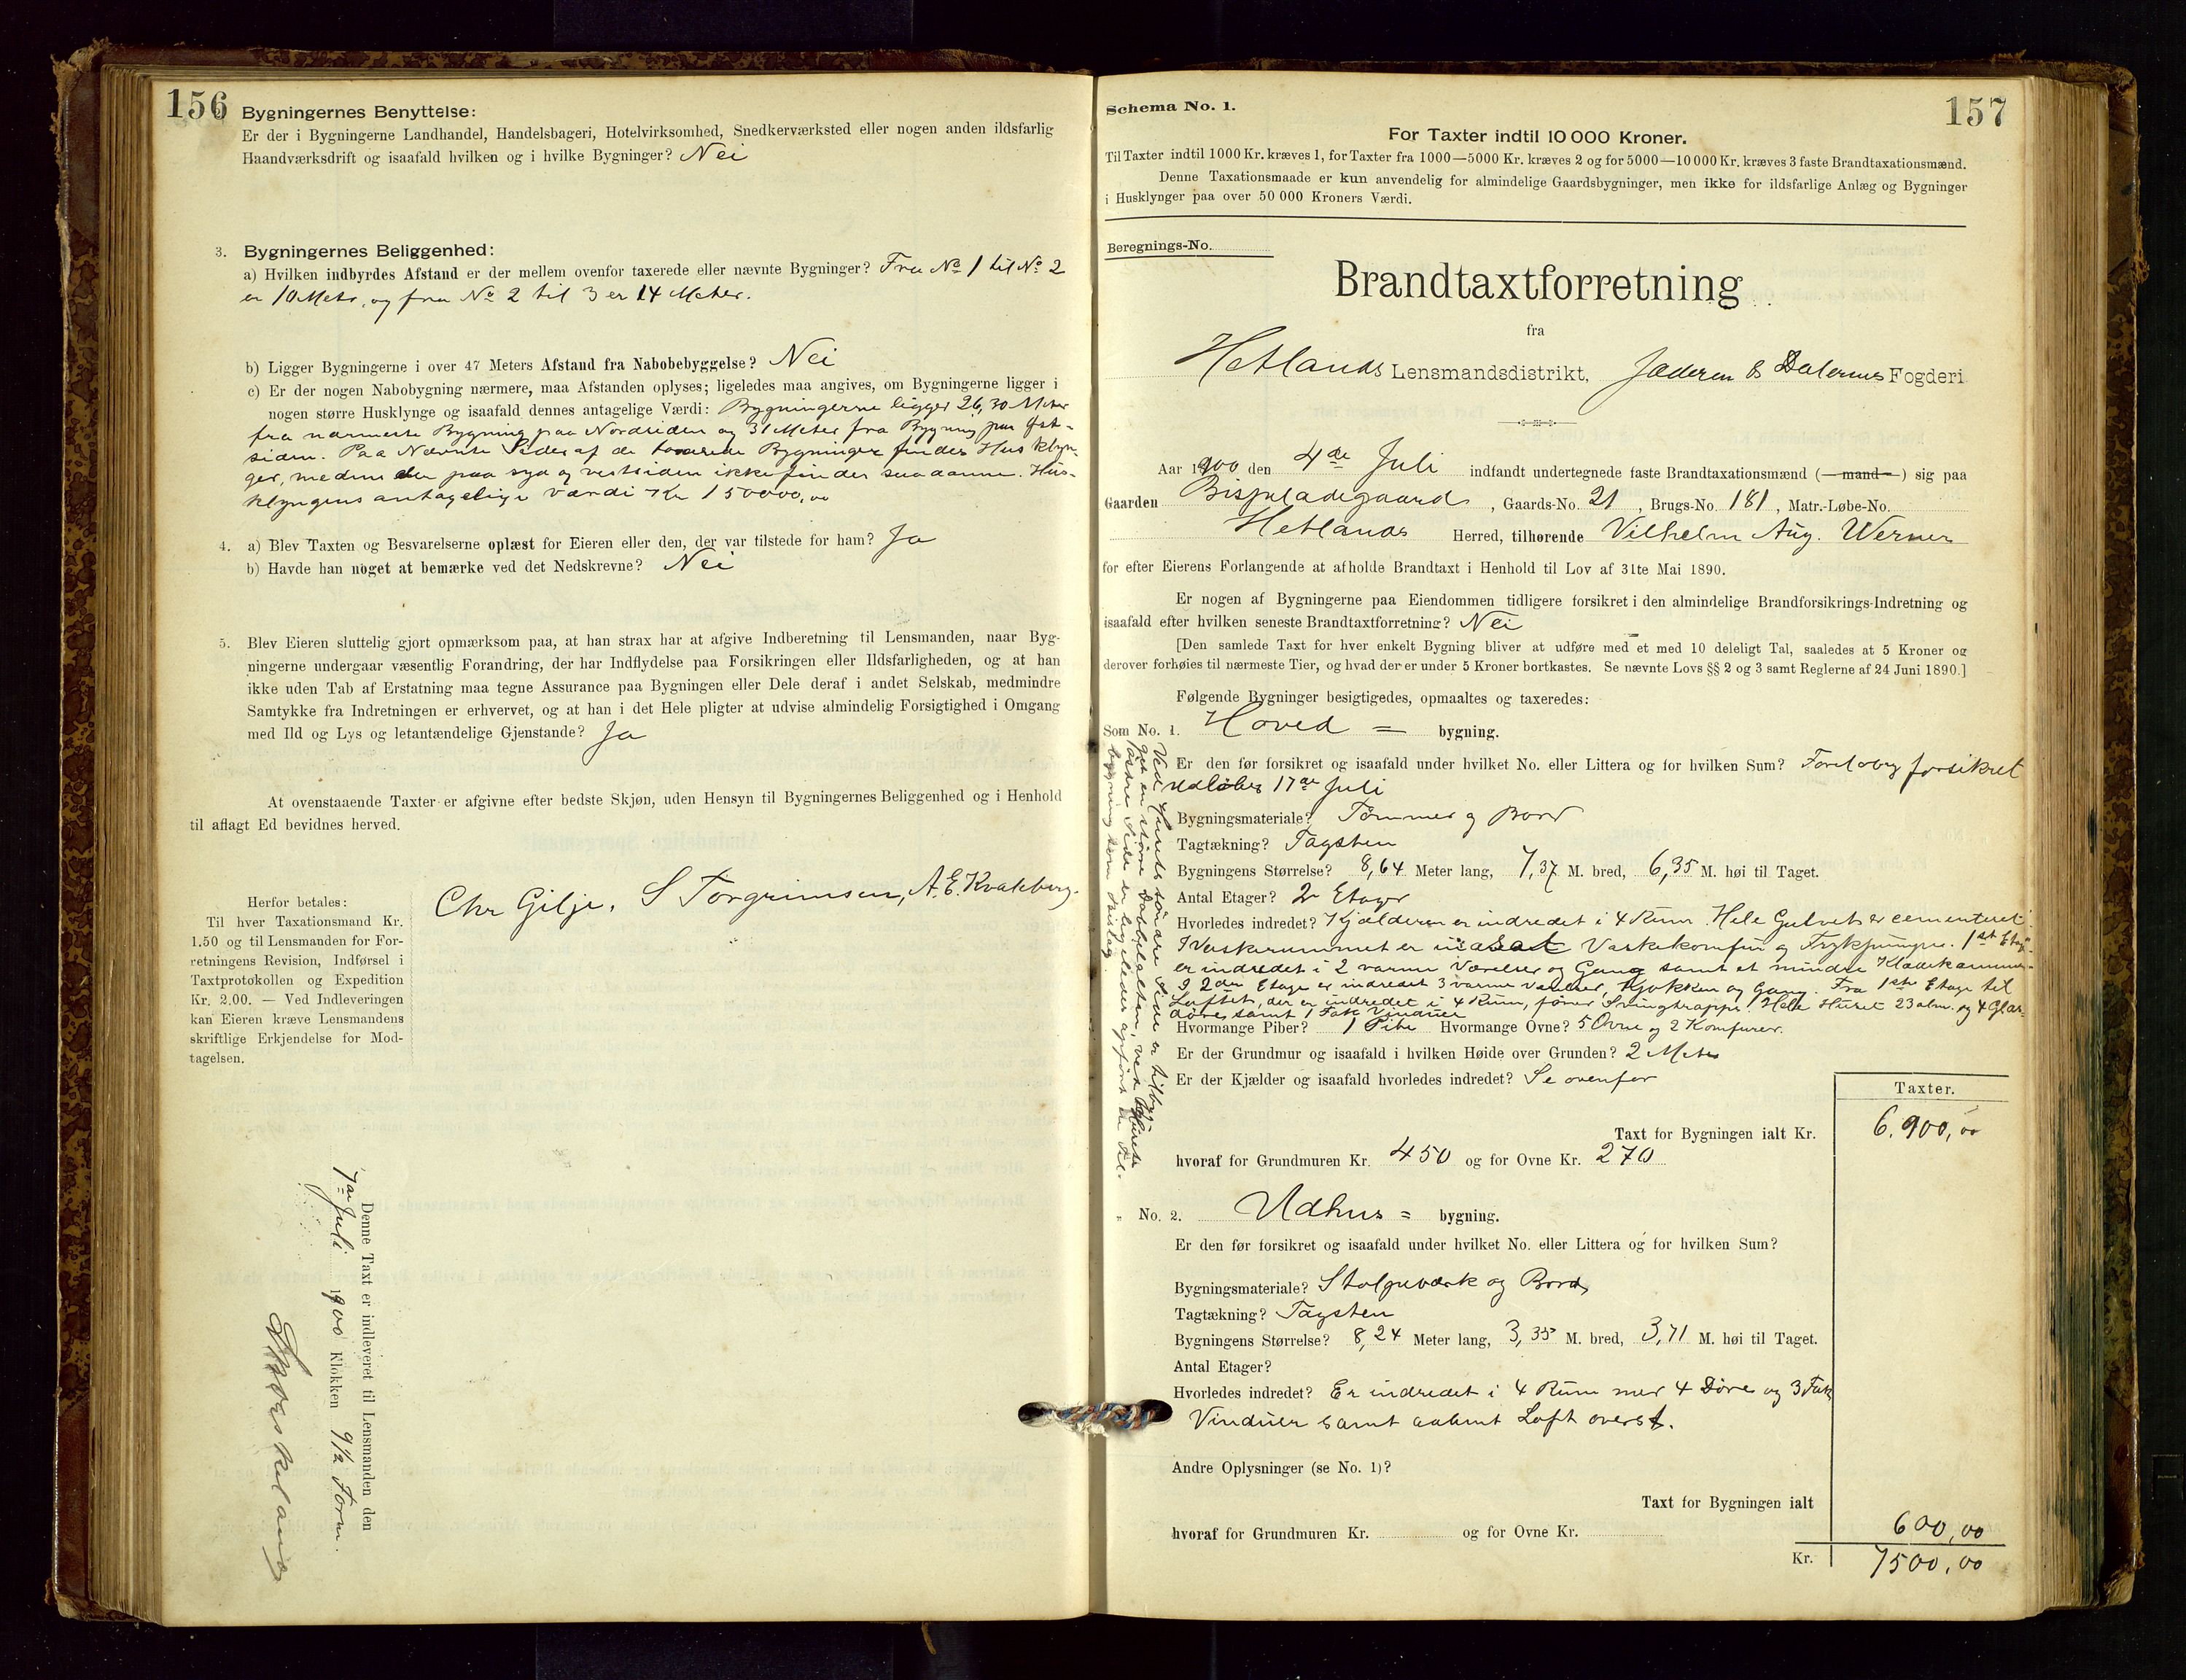 156
Bygningernes Benyttelse:
Er der i Bygningerne Landhandel, Handelsbageri, Hotelvirksomhed, Snedkerværksted eller nogen anden ildsfarlig
Haandværksdrift og isaafald hvilken og i hvilke Bygninger? Nei
3. Bygningernes Beliggenhed:
a) Hvilken indbyrdes Afstand er der mellem ovenfor taxerede eller nævnte Bygninger? Fra No 1 til No 2
er 10 Meter, og fra No 2 til 3 er 14 Meter.
b) Ligger Bygningerne i over 47 Meters Afstand fra Nabobebyggelse? Nei
c) Er der nogen Nabobygning nærmere, maa Afstanden oplyses; ligeledes maa angives, om Bygningerne ligger i
nogen større Husklynge og isaafald dennes antagelige Værdi: Bygningerne ligger 26,30 Meter
fra nærmeste Bygning paa Nordsiden og 31 Meter fra Bygning paa Øst-
siden. Paa Nævnte Sider af de taxerede Bygninger findes Husklyn-
ger, medens der paa syd og vestsiden ikke findes saadanne. Hus-
klyngens antagelige værdi Kr 150000,00
4. a) Blev Taxten og Besvarelserne oplæst for Eieren eller den, der var tilstede for ham? Ja
b) Havde han noget at bemærke ved det Nedskrevne? Nei
5. Blev Eieren sluttelig gjort opmærksom paa, at han strax har at afgive Indberetning til Lensmanden, naar Byg-
ningerne undergaar væsentlig Forandring, der har Indflydelse paa Forsikringen eller Ildsfarligheden, og at han
ikke uden Tab af Erstatning maa tegne Assurance paa Bygningen eller Dele deraf i andet Selskab, medmindre
Samtykke fra Indretningen er erhvervet, og at han i det Hele pligter at udvise almindelig Forsigtighed i Omgang
med Ild og Lys og letantændelige Gjenstande? Ja
At ovenstaaende Taxter er afgivne efter bedste Skjøn, uden Hensyn til Bygningernes Beliggenhed og i Henhold
til aflagt Ed bevidnes herved.
Chr Gilje, S Torgrimsen, A. E. Kvaleberg.
Herfor betales:
Til hver Taxationsmand Kr.
1.50 og til Lensmanden for For-
retningens Revision, Indførsel i
Taxtprotokollen og Expedition
Kr. 2.00. — Ved Indleveringen
kan Eieren kræve Lensmandens
skriftlige Erkjendelse for Mod-
tagelsen.
Denne Taxt er indleveret til Lensmanden den
7de Juli 1900 Klokken 9 1/2 Form.
157
Schema No. 1.
For Taxter indtil 10 000 Kroner.
Til Taxter indtil 1000 Kr. kræves 1, for Taxter fra 1000—5000 Kr. kræves 2 og for 5000—10 000 Kr. kræves 3 faste Brandtaxationsmænd.
Denne Taxationsmaade er kun anvendelig for almindelige Gaardsbygninger, men ikke for ildsfarlige Anlæg og Bygninger
i Husklynger paa over 50 000 Kroners Værdi.
Beregnings-No.
Brandtaxtforretning
fra
Hetlands Lensmandsdistrikt, Jæderen & Dalernes Fogderi
Aar 1900 den 4de Juli indfandt undertegnede faste Brandtaxationsmænd (—mand—) sig paa
Gaarden Bispeladegaard, Gaards-No. 21, Brugs-No. 181, Matr.-Løbe-No.
Hetlands Herred, tilhørende Vilhelm Aug. Werner
for efter Eierens Forlangende at afholde Brandtaxt i Henhold til Lov af 31te Mai 1890.
Er nogen af Bygningerne paa Eiendommen tidligere forsikret i den almindelige Brandforsikrings-Indretning og
isaafald efter hvilken seneste Brandtaxtforretning? Nei
[Den samlede Taxt for hver enkelt Bygning bliver at udføre med et med 10 deleligt Tal, saaledes at 5 Kroner og
derover forhøies til nærmeste Tier, og hvad der er under 5 Kroner bortkastes. Se nævnte Lovs §§ 2 og 3 samt Reglerne af 24 Juni 1890.]
Følgende Bygninger besigtigedes, opmaaltes og taxeredes:
Som No. 1. Hoved = bygning.
Er den før forsikret og isaafald under hvilket No. eller Littera og for hvilken Sum? Foreløbig forsikret
Udløber 17de Juli
Bygningsmateriale? Tømmer og Bord
Tagtækning? Tagsten
Bygningens Størrelse? 8,64 Meter lang, 7,37 M. bred, 6,35 M. høi til Taget.
Antal Etager? 2 Etager
Hvorledes indredet? Kjælderen er indredet i 4 Rum. Hele Gulvet er cementeret.
I Vaskerummet er indsat Vaskekomfur og Trykpumpe. 1ste Etage
er indredet i 2 varme Værelser og Gang samt et mindre Klædekammer.
I 2den Etage er indredet 3 varme værelser, Kjøkken og Gang. Fra 1ste Etage til
Loftet, der er indredet i 4 Rum, fører Svingtrappe. I Hele Huset 23 alm. og 4 Glas-
døre samt 1 Fak Vinduer
Hvormange Piber? 1 Pibe Hvormange Ovne? 5 Ovne og 2 Komfurer.
Er der Grundmur og isaafald i hvilken Høide over Grunden? 2 Meter
Er der Kjælder og isaafald hvorledes indredet? Se ovenfor
Taxter.
Taxt for Bygningen ialt Kr. 6.900,00
hvoraf for Grundmuren Kr. 450 og for Ovne Kr. 270
Ved Husets søndre Side er tilbyg-
get en større Dobbeltaltan, ved Husets
østre Side er ligeledes opført en Til-
bygning
" No. 2. Udhus = bygning.
Er den før forsikret og isaafald under hvilket No. eller Littera og for hvilken Sum?
Bygningsmateriale? Stolpeværk og Bord
Tagtækning? Tagsten
Bygningens Størrelse? 8,24 Meter lang, 3,35 M. bred, 3,71 M. høi til Taget.
Antal Etager?
Hvorledes indredet? Er indredet i 4 Rum med 4 Døre og 3 Fak
Vinduer samt aabent Loft øverst.
Andre Oplysninger (se No. 1)?
Taxt for Bygningen ialt
hvoraf for Grundmuren Kr. og for Ovne Kr. 600,00
Kr. 7500,00